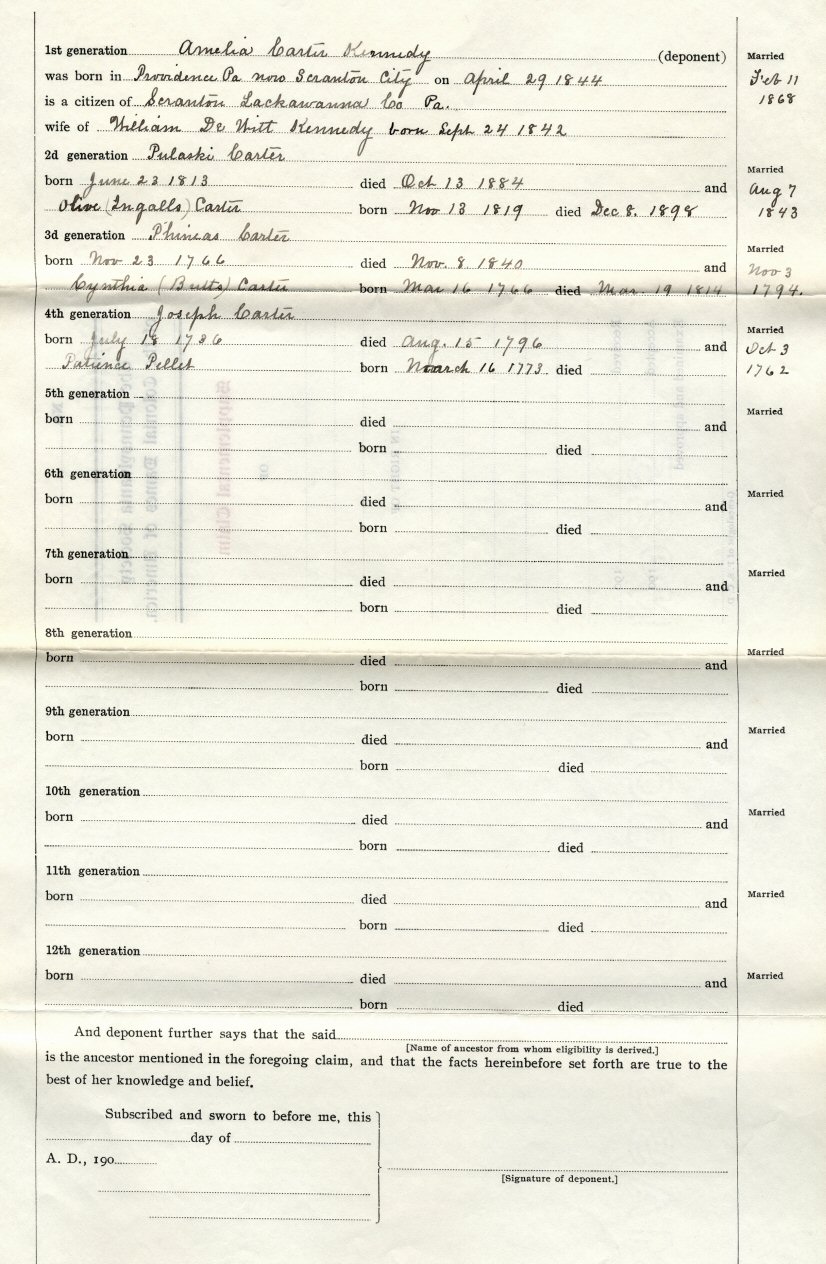 1st generation Amelia Carter Kennedy (deponent) Married
was born in Providence Pa now Scranton City on April 29 1844 Feb 11
is a citizen of Scranton Lackawanna Co Pa. 1868
wife of William De Witt Kennedy born Sept 24 1842
2d generation Pulaski Carter Married
born June 23 1813 died Oct 13 1884 and Aug 7
Olive (Ingalls) Carter born Nov 13 1819 died Dec 8. 1898 1843
3d generation Phineas Carter Married
born Nov 23 1766 died Nov. 8 1840 and Nov 3
Cynthia (Butts) Carter born Mar 16 1766 died Mar. 19 1814 1794.
4th generation Joseph Carter Married
born July 18 1736 died Aug. 15 1796 and Oct 3
Patience Pellet born March 16 1773 died 1762
5th generation Married
born died and
born died
6th generation Married
born died and
born died
7th generation Married
born died and
born died
8th generation Married
born died and
born died
9th generation Married
born died and
born died
10th generation Married
born died and
born died
11th generation Married
born died and
born died
12th generation Married
born died and
born died
And deponent further says that the said
[Name of ancestor from whom eligibility is derived.]
is the ancestor mentioned in the foregoing claim, and that the facts hereinbefore set forth are true to the
best of her knowledge and belief.
Subscribed and sworn to before me, this
day of
A. D., 190
[Signature of deponent.]